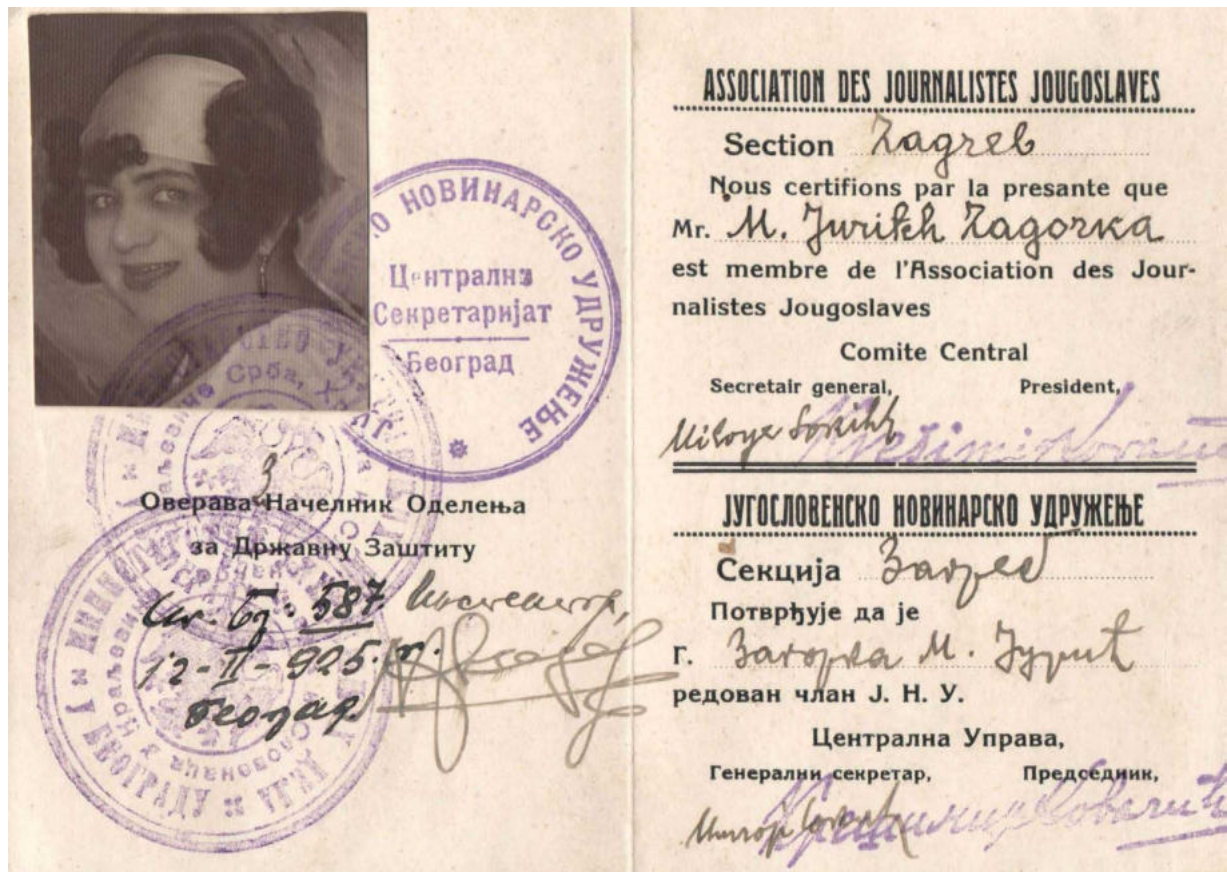 НОВИНАРСКО УДРУЖЕЊЕ
Централни
Секретаријат
Београд
Оверава Начелник Оделења
за Државну Заштиту
587
12-II-925.
Београд
ASSOCIATION DES JOURNALISTES JOUGOSLAVES
Section Zagreb
Nous certifions par la presante que
Mr. M. Jurikh Zagorka
est membre de l'Association des Jour-
nalistes Jougoslaves
Comite Central
Secretair general, President,
ЈУГОСЛОВЕНСКО НОВИНАРСКО УДРУЖЕЊЕ
Секција Загреб
Потврђује да је
Г. Загорка М. Јурић
редован члан Ј. Н. У.
Централна Управа,
Генерални секретар, Председник,